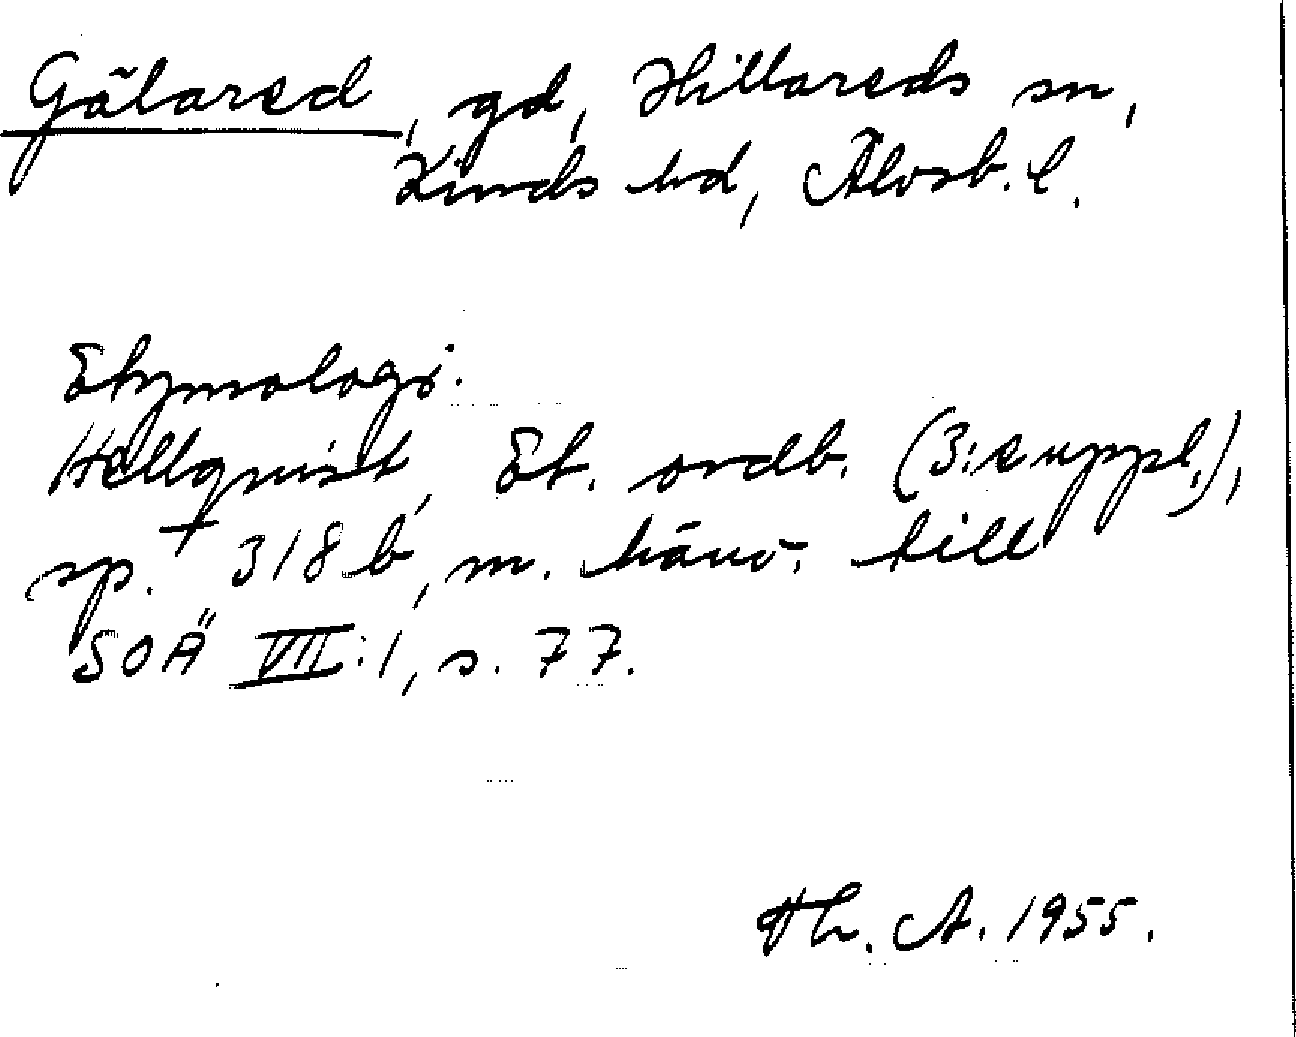 Gälared, gd, Hillareds sn,
Kinds hd, Älvsb. l.
Etymologi.
Hellquist, Et. ordb. (3:e uppl.),
sp. 318 b, m. hänv. till
SOÄ VII:1, s. 77.
Th. A. 1955.